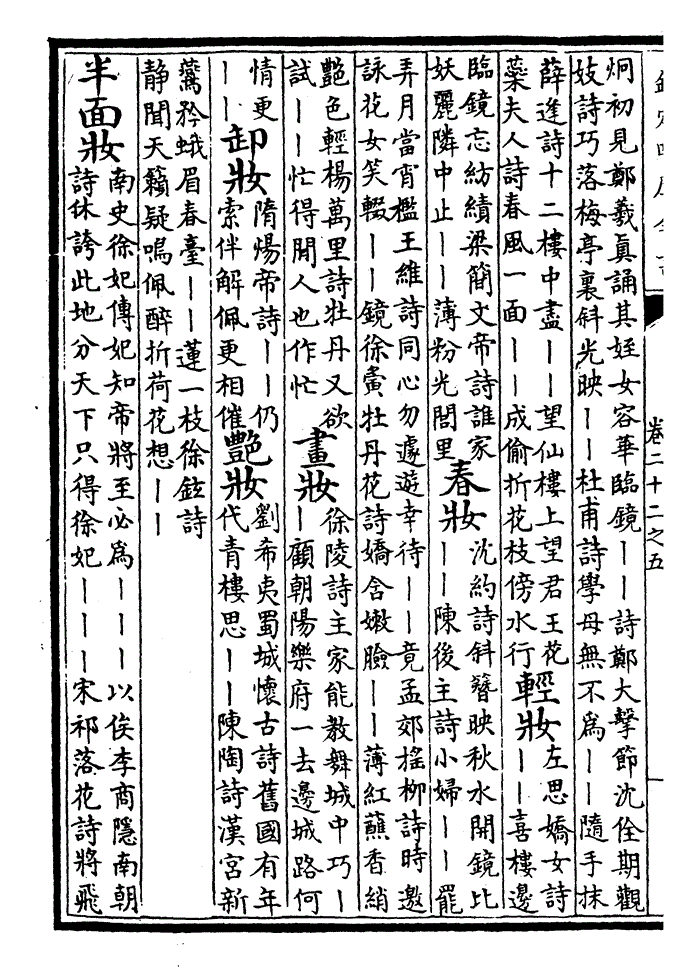 欽定四庫全書
卷二十二之五
炯初見鄭羲真誦其姪女容華臨鏡丨丨詩鄭大擊節沈佺期觀
妓詩巧落梅亭裏斜光映丨丨杜甫詩學母無不為丨丨隨手抹
薛逢詩十二樓中盡丨丨望仙樓上望君王花
蘂夫人詩春風一面丨丨成偷折花枝傍水行
輕妝
左思嬌女詩
丨丨喜樓邊
臨鏡忘紡績梁簡文帝詩誰家
妖麗隣中止丨丨薄粉光閭里
春妝
沈約詩斜簪映秋水開鏡比
丨丨陳後主詩小婦丨丨罷
弄月當宵檻王維詩同心勿遽遊幸待丨丨竟孟郊搖柳詩時邀
詠花女笑輟丨丨鏡徐夤牡丹花詩嬌含嫩臉丨丨薄紅蘸香綃
艷色輕楊萬里詩牡丹又欲
試丨丨忙得閒人也作忙
畫妝
徐陵詩主家能教舞城中巧丨
丨顧朝陽樂府一去邊城路何
情更
丨丨
卸妝
隋煬帝詩丨丨仍
索伴解佩更相催
艷妝
劉希夷蜀城懷古詩舊國有年
代青樓思丨丨陳陶詩漢宮新
鷰矜蛾眉春臺丨丨蓮一枝徐鉉詩
靜聞天籟疑鳴佩醉折荷花想丨丨
半面妝
南史徐妃傳妃知帝將至必為丨丨丨以俟李商隱南朝
詩休誇此地分天下只得徐妃丨丨丨宋祁落花詩將飛